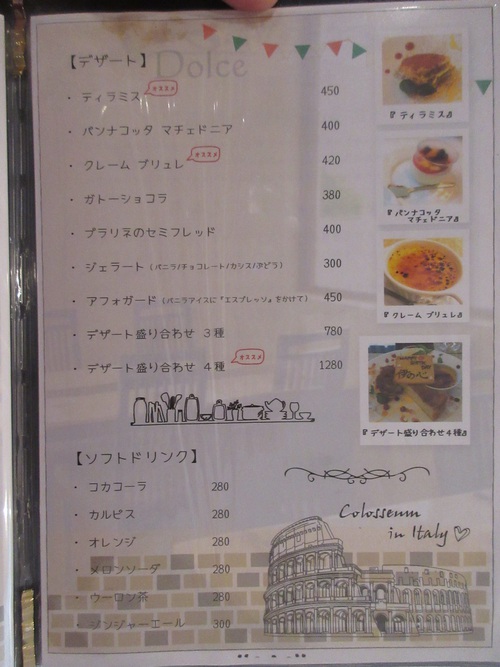 【デザート】 Dolce
・ティラミス オススメ 450
・パンナコッタ マチェドニア 400
・クレーム ブリュレ オススメ 420
・ガトーショコラ 380
・プラリネのセミフレッド 400
・ジェラート (バニラ/チョコレート/カシス/ぶどう) 300
・アフォガード (バニラアイスに『エスプレッソ』をかけて) 450
・デザート盛り合わせ 3種 780
・デザート盛り合わせ 4種 オススメ 1280
『ティラミス』
『パンナコッタ
マチェドニア』
『クレーム ブリュレ』
『デザート盛り合わせ4種』
【ソフトドリンク】
・コカコーラ 280
・カルピス 280
・オレンジ 280
・メロンソーダ 280
・ウーロン茶 280
・ジンジャーエール 300
Colosseum
in Italy